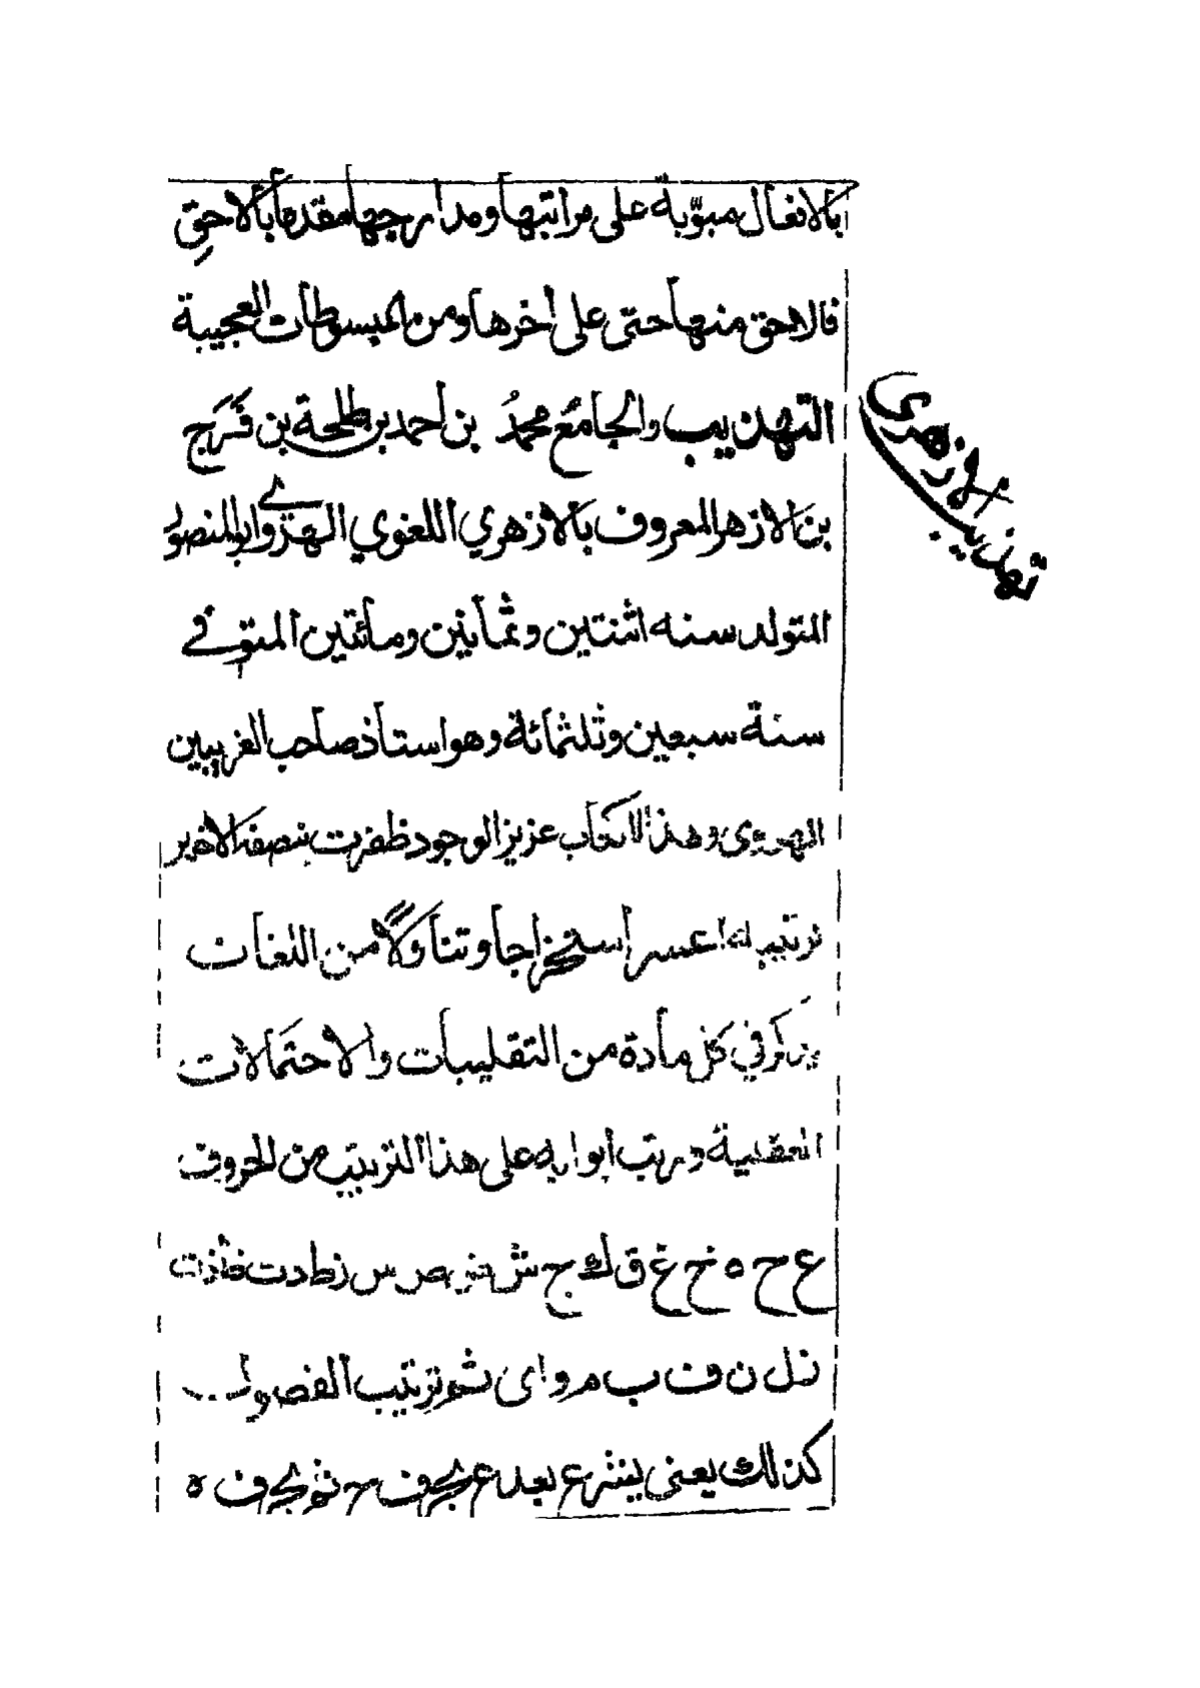 بالافعال مبوّبة على مراتبها ومدارجها مقدما بالاحق
فالاحق منها حتى على أخرها ومن المبسوطات العجيبة
التهذيب والجامع محمدُ بن احمد بن طلحة بن فَرَج
بن الازهر المعروف بالازهري اللغوي الهروي ابو المنصور
المتولد سنه اثنتين وثمانين ومائتين المتوفي
سنة سبعين وثلثمائة وهو استاذ صاحب الغريبين
الهروى وهذا الكتاب عزيز الوجود ظفرت بنصفه الاخير
ترتيبه اعسر استخراجا وتناوُلاً من اللغات
يذكر في كل مادة من التقليبات والاحتمالات
العقلية ورتب ابوابه على هذا الترتيب من الحروف
ع ح ه خ غ ق ك ج ش ض ص س ز ط د ت ظ ذ ث
ر ل ن ف ب م و ا ى ثم ترتيب الفصول
كذلك يعنى يشرع بعد ع بحرف ح ثم بحرف ه
تهذيب الازهرى